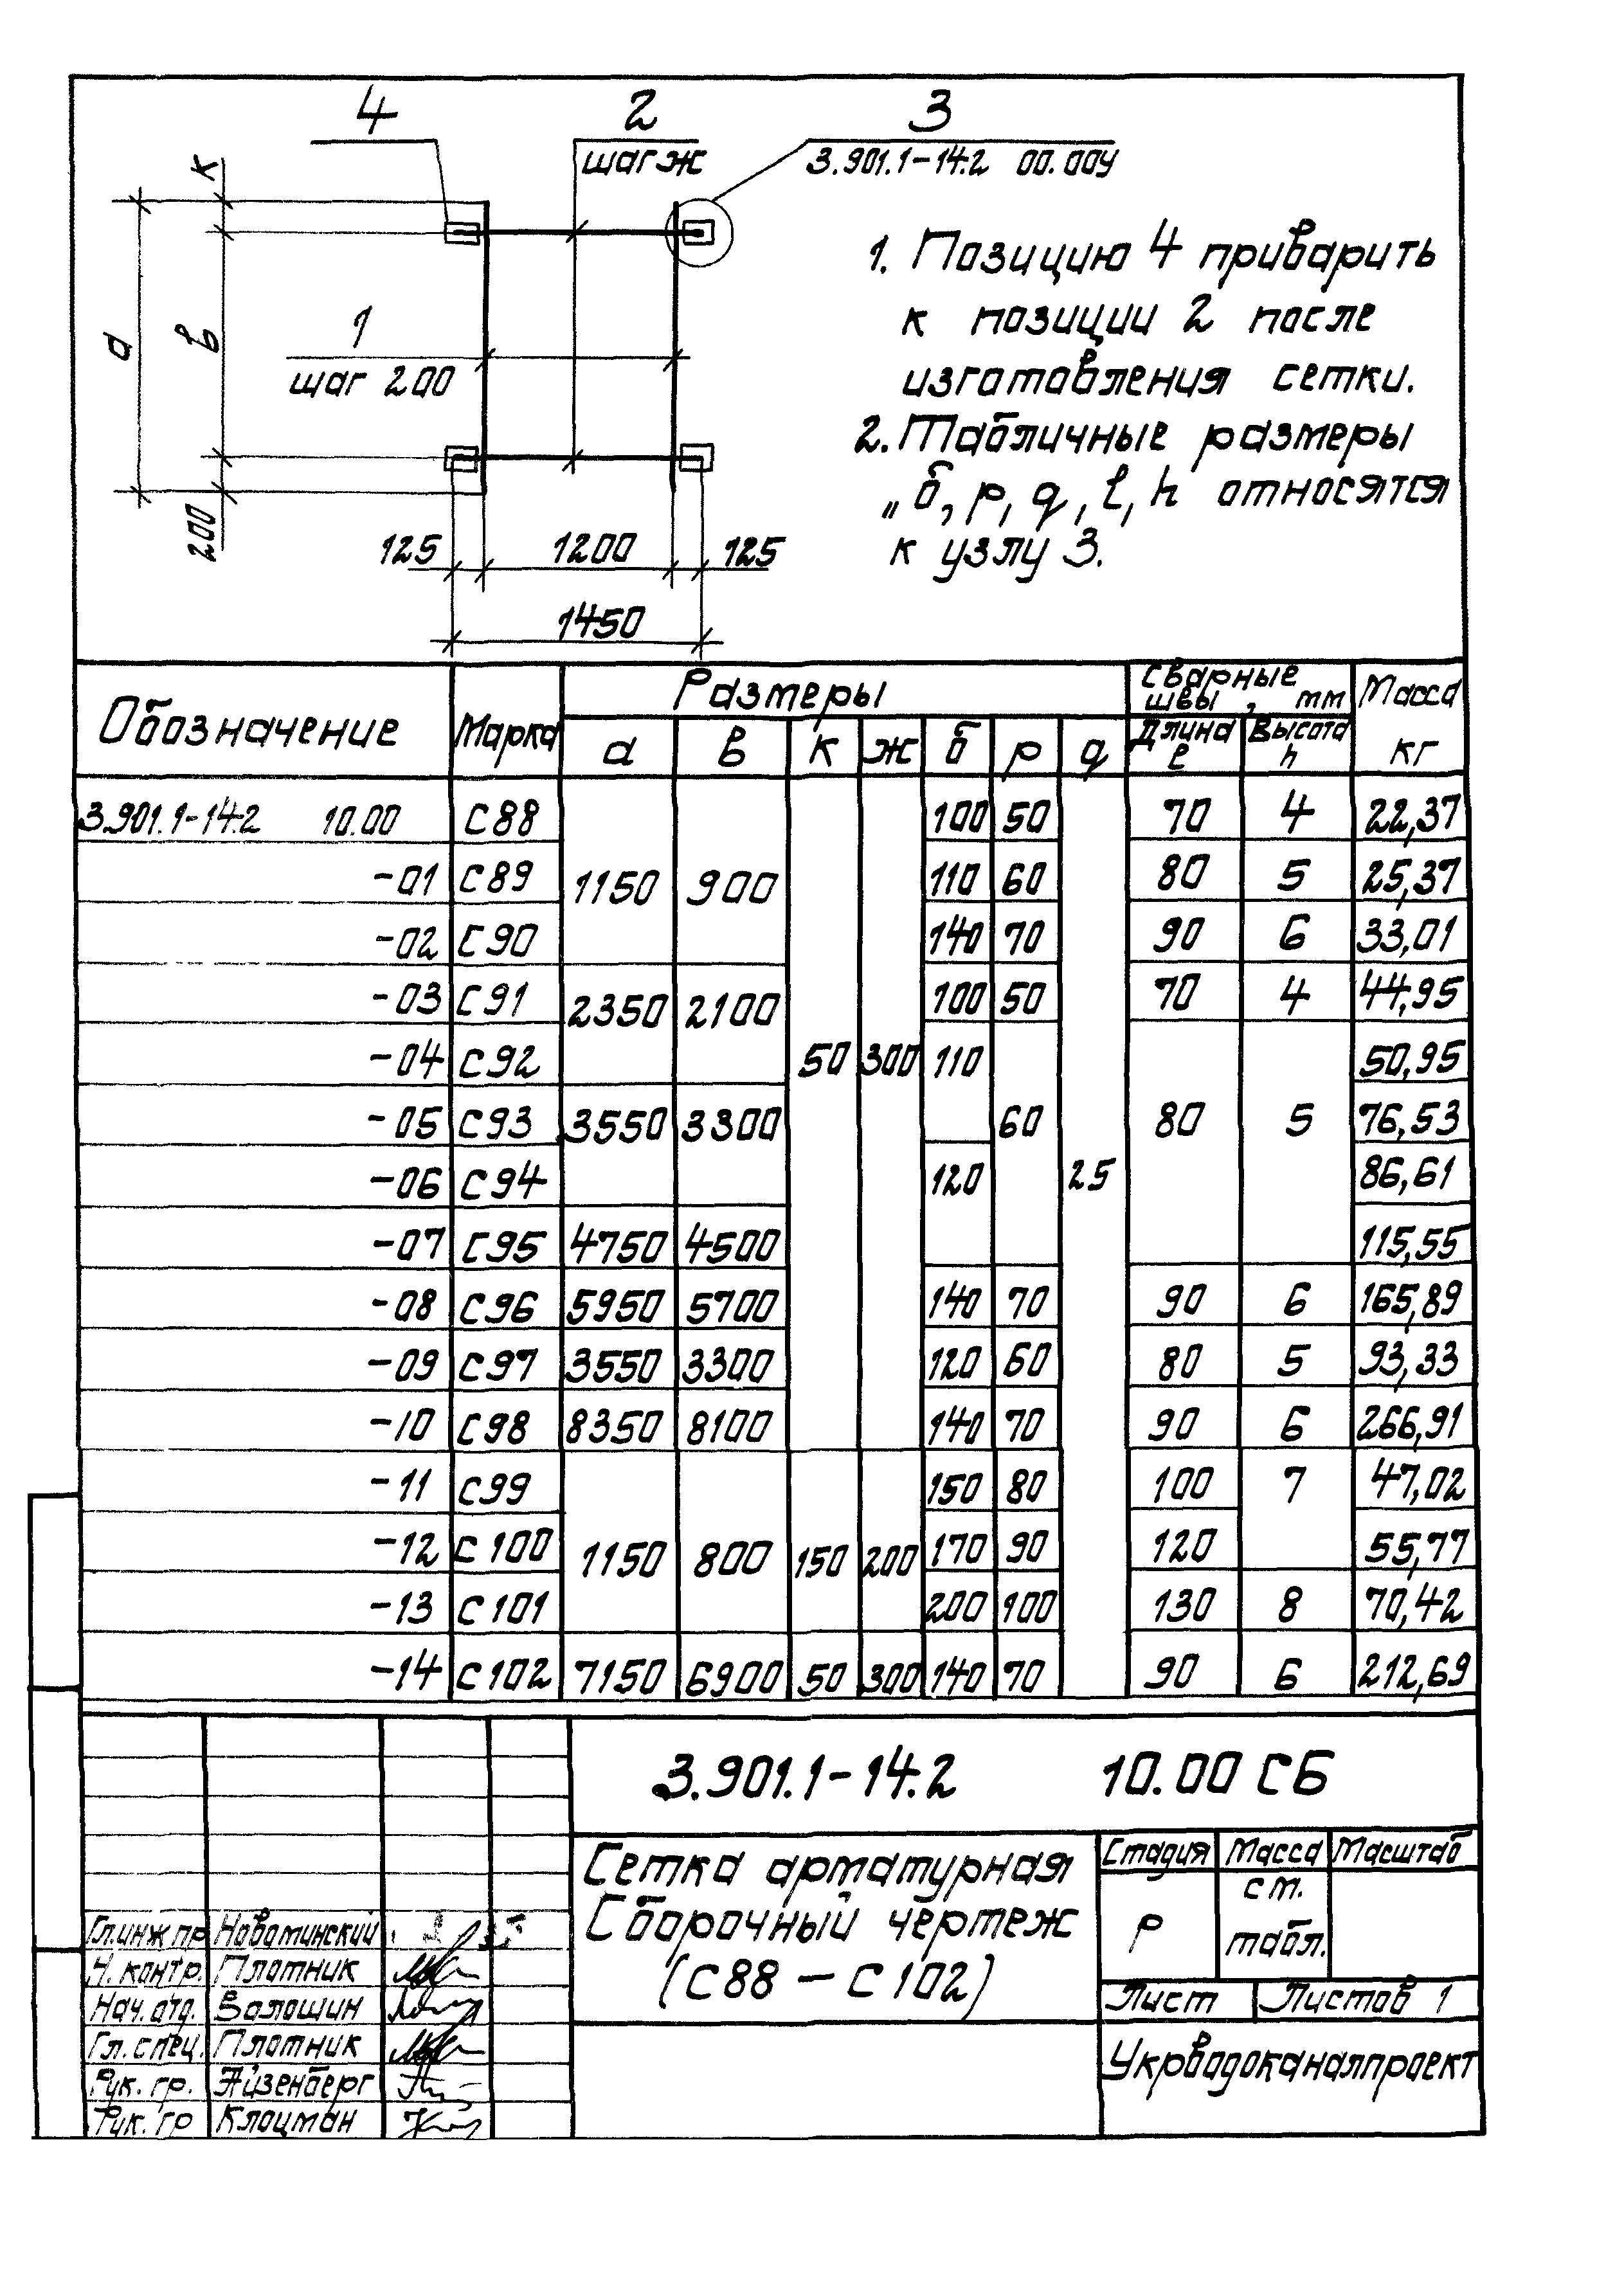 4
2
3
шаг ж
3.901.1-14.2 00.00У
к
а
в
1
шаг 200
200
125
1200
125
1450
1. Позицию 4 приварить
к позиции 2 после
изготовления сетки.
2. Табличные размеры
„б, р, q, ℓ, h относятся
к узлу 3.
Обозначение Марка Размеры Сварные швы, мм Масса кг
а в к ж б р q Длина ℓ Высота h
3.901.1-14.2 10.00 С88 100 50 70 4 22,37
-01 С89 1150 900 110 60 80 5 25,37
-02 С90 140 70 90 6 33,01
-03 С91 2350 2100 100 50 70 4 44,95
-04 С92 50 300 110 50,95
-05 С93 3550 3300 60 80 5 76,53
-06 С94 120 25 86,61
-07 С95 4750 4500 115,55
-08 С96 5950 5700 140 70 90 6 165,89
-09 С97 3550 3300 120 60 80 5 93,33
-10 С98 8350 8100 140 70 90 6 266,91
-11 С99 150 80 100 7 47,02
-12 С100 1150 800 150 200 170 90 120 55,77
-13 С101 200 100 130 8 70,42
-14 С102 7150 6900 50 300 140 70 90 6 212,69
3.901.1-14.2 10.00 СБ
Сетка арматурная
Сборочный чертеж
(С88 – С102)
Стадия Масса Масштаб
Р см. табл.
Лист Листов 1
Укрводоканалпроект
Гл.инж.пр Новоминский
Н. контр. Плотник
Нач. отд. Волошин
Гл. спец. Плотник
Рук. гр. Эйзенберг
Рук. гр Клоцман